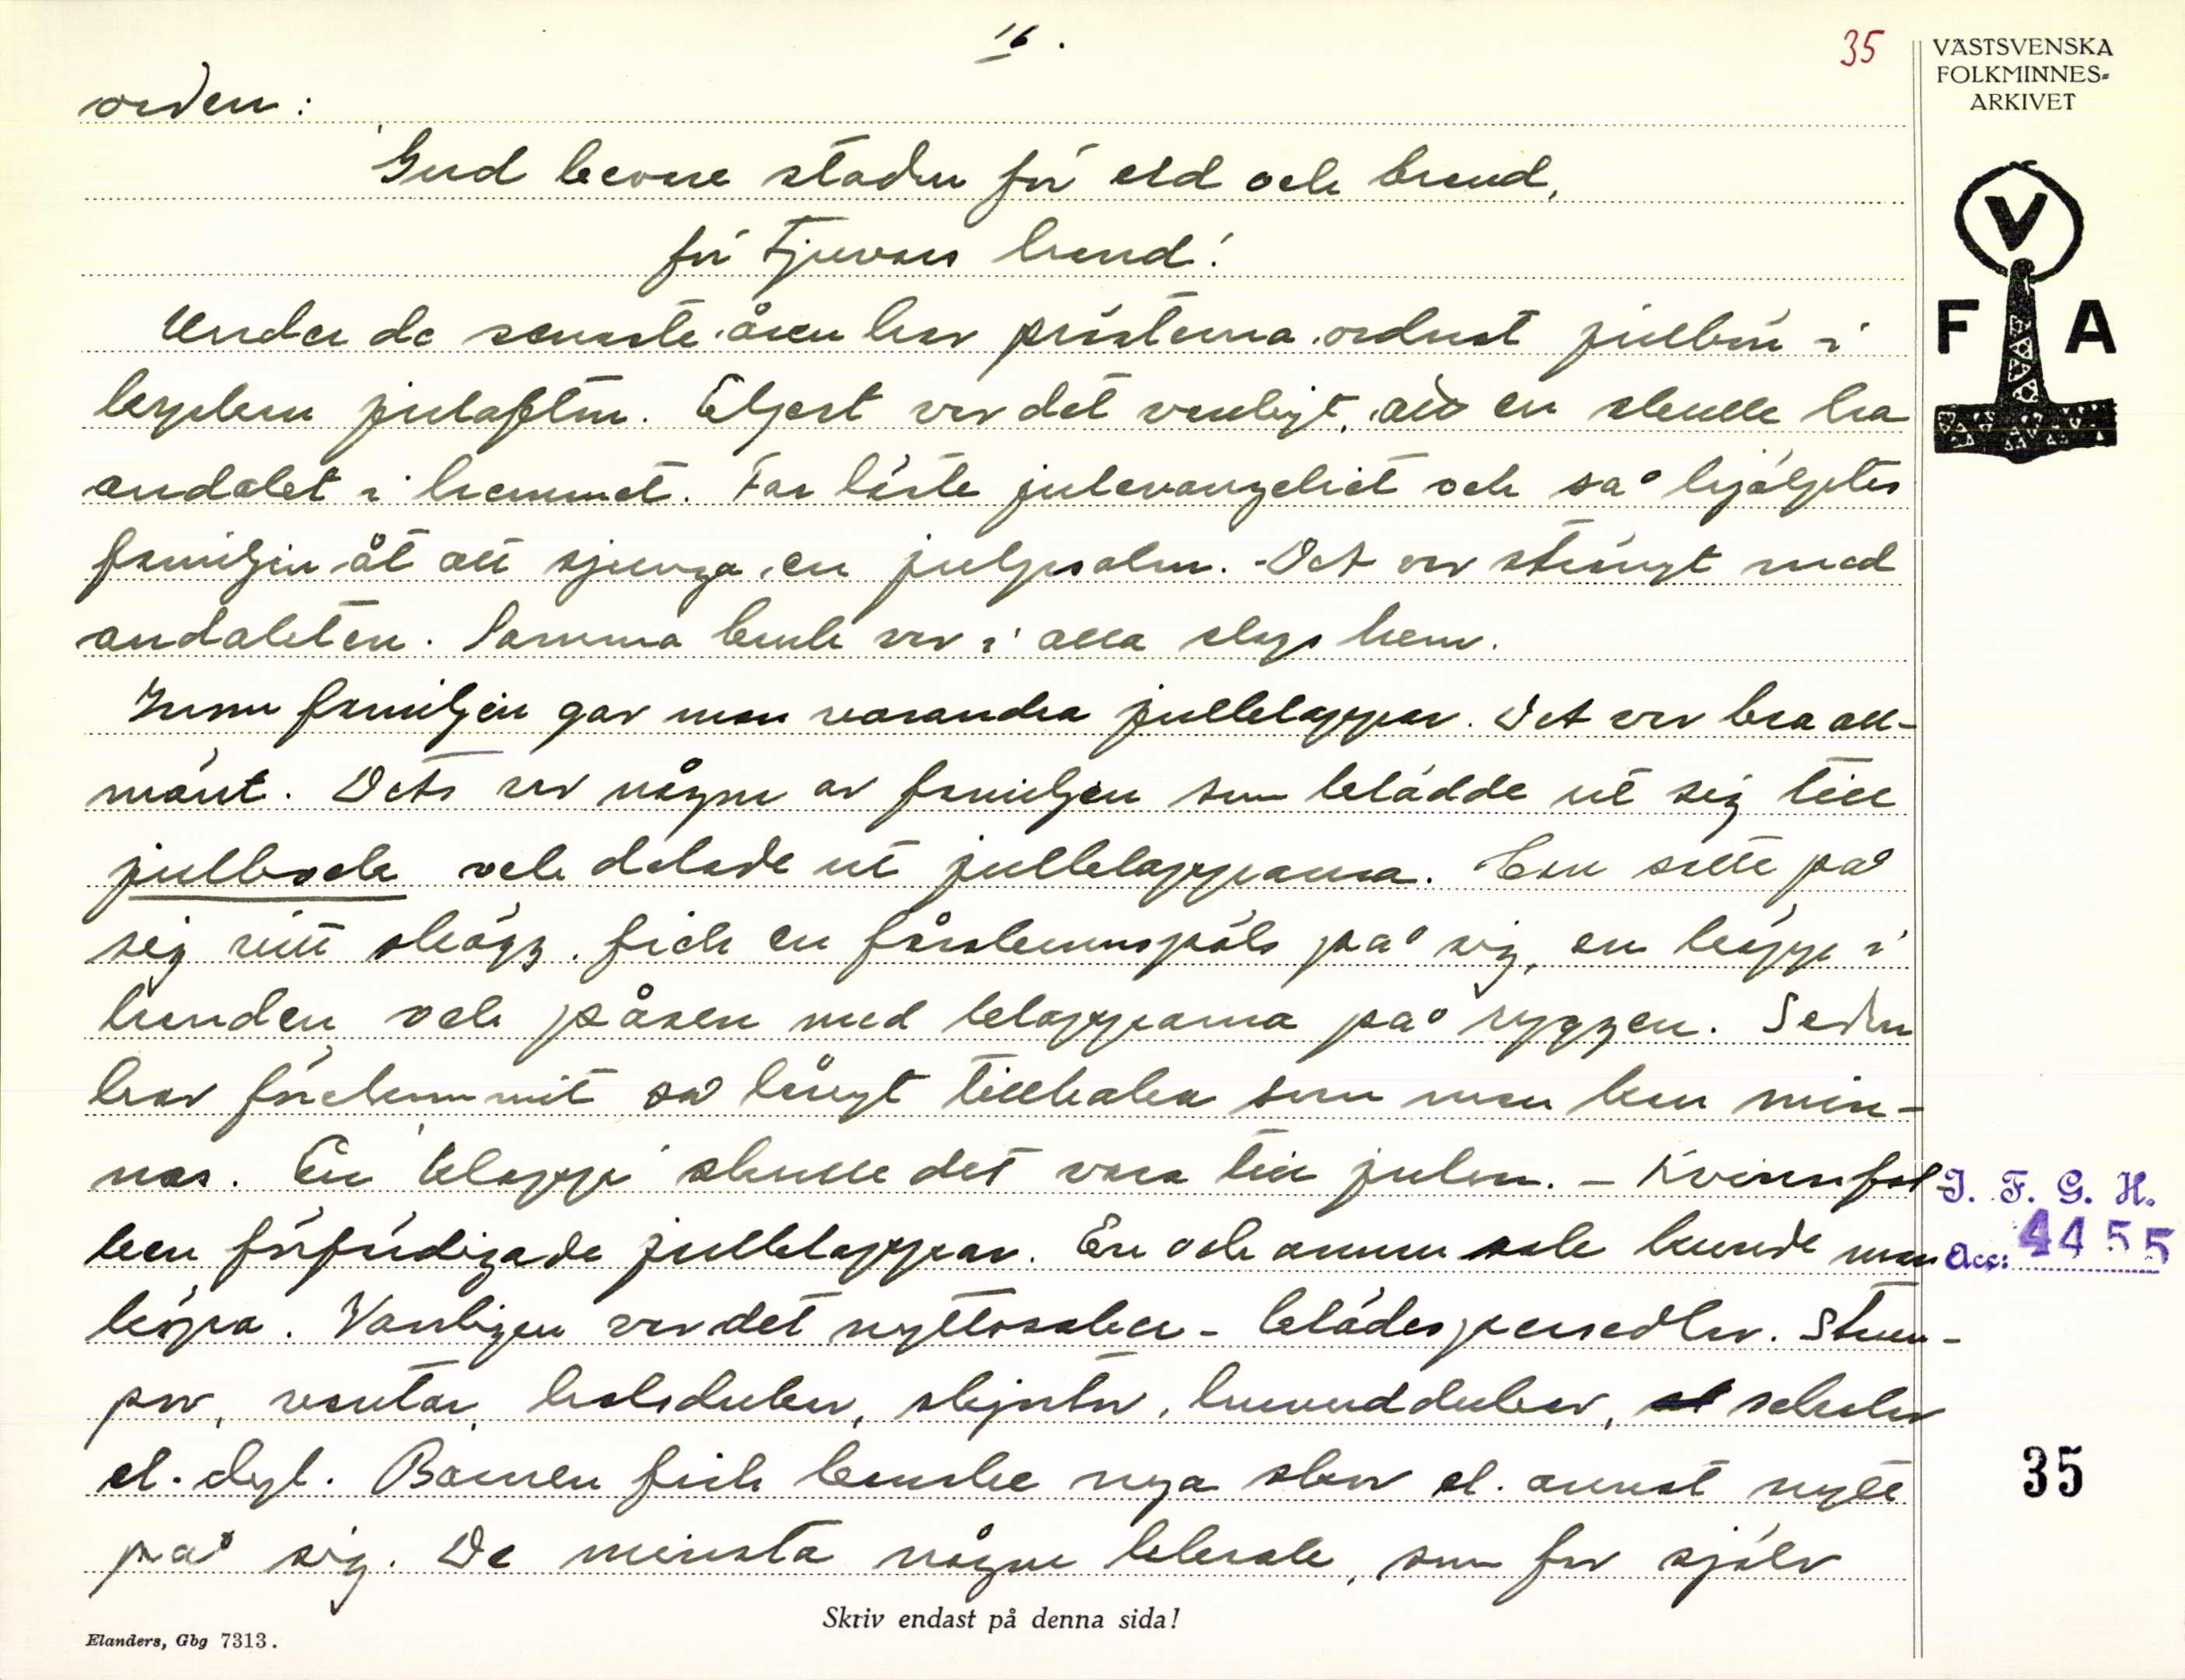 16.
35
VÄSTSVENSKA
FOLKMINNES-
ARKIVET
orden:
"Gud bevare staden för eld och brand,
för tjuvars hand!
V
F A
Under de senaste åren har prästerna ordnat julbön i
kyrkan julafton. Eljest var det vanligt, att en skulle ha
andakt i hemmet. Far läste julevangeliet och så hjälptes
familjen åt att sjunga en julpsalm. - Det var strängt med
andakten. Samma bruk var i alla slags hem.
Inom familjen gav man varandra julklappar. Det var bra all-
mänt. Det var någon av familjen som klädde ut sig till
julbock och delade ut julklapparna. Han satte på
sig vitt skägg, fick en fårskinnspäls på sig, en käpp i
handen och påsen med klapparna på ryggen. Seden
har förekommit så långt tillbaka som man kan min-
nas. En "klapp" skulle det vara till julen. - Kvinnfol-
ken förfärdigade julklappar. En och annan sak kunde man
köpa. Vanligen var det nyttosaker - klädespersedlar. Strum-
por, vantar, halsdukar, skjortor, huvuddukar, schalar
el. dyl. Barnen fick kanske nya skor el. annat nytt
på sig. De minsta någon leksak, som far själv
I. F. G. H.
Acc: 4455
35
Skriv endast på denna sida!
Elanders, Gbg 7313.